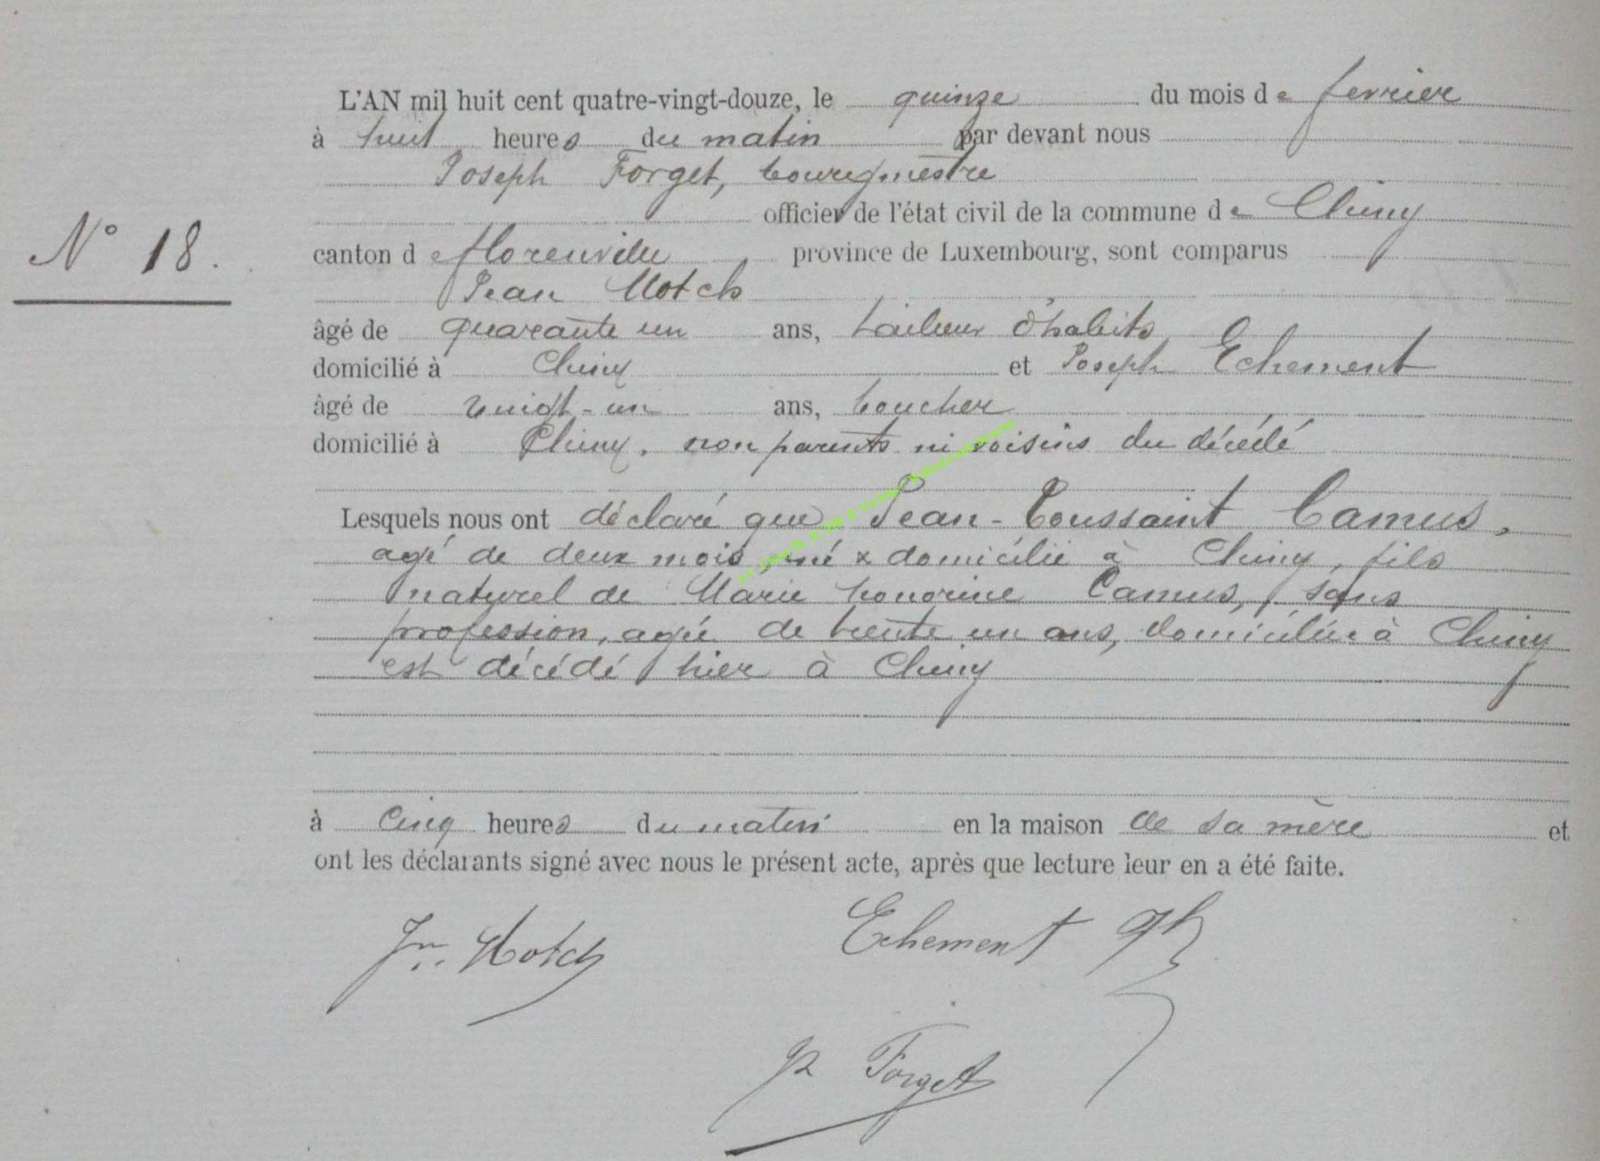 L'AN mil huit cent quatre-vingt-douze, le quinze du mois de fevrier
à huit heures du matin par devant nous
Joseph Forget, bourgmestre
officier de l'état civil de la commune de Chiny
N° 18.
canton de florenville province de Luxembourg, sont comparus
Jean Motch
âgé de quarante un ans, tailleur d'habits
domicilié à Chiny et Joseph Echement
âgé de vingt-un ans, boucher
domicilié à Chiny. non parents ni voisins du décédé
Lesquels nous ont déclaré que Jean-Toussaint Camus,
agé de deux mois, né & domicilié à Chiny, fils
naturel de Marie honorine Camus, sans
profession, agée de trente un ans, domiciliée à Chiny
est décédé hier à Chiny
à cinq heures du matin en la maison de sa mère et
ont les déclarants signé avec nous le présent acte, après que lecture leur en a été faite.
Jn. Motch Echement Jph
Jh Forget